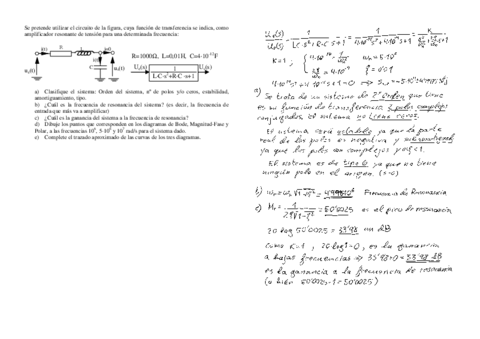 Se pretende utilizar el circuito de la figura, cuya función de transferencia se indica, como
amplificador resonante de tensión para una determinada frecuencia:
R=1000Ω, L=0,01H, C=4·10⁻¹²F
R
L
i(t)
u₁(t)
C
u₀(t)
U₁(s)
U₀(s)
1
L·C·s²+R·C·s+1
a) Clasifique el sistema: Orden del sistema, nº de polos y/o ceros, estabilidad,
amortiguamiento, tipo.
b) ¿Cuál es la frecuencia de resonancia del sistema? (es decir, la frecuencia de
entrada que más va a amplificar)
c) ¿Cuál es la ganancia del sistema a la frecuencia de resonancia?
d) Dibuje los puntos que corresponden en los diagramas de Bode, Magnitud-Fase y
Polar, a las frecuencias
para el sistema dado.
e) Complete el trazado aproximado de las curvas de los tres diagramas.
K=1,
a) Se trata de un sistema de 2º Orden que tiene
en su función de transferencia 2 polos complejos
conjugados. El sistema no tiene ceros.
El sistema será estable ya que la parte
real de los polos es negativa y subamortiguado
ya que los polos son complejos
El sistema es de tipo 0 ya que no tiene
ningún polo en el origen. (s=0)
b)
Frecuencia de Resonancia
c)
= 50'0025 es el pico de resonancia
20 log 50'0025 = 33'98 en dB
Como K=1, 20 log 1=0, es la ganancia
a bajas frecuencias ⇒ 33'98+0 = 33'98 dB
es la ganancia a la frecuencia de resonancia
(o bien 50'0025·1=50'0025)